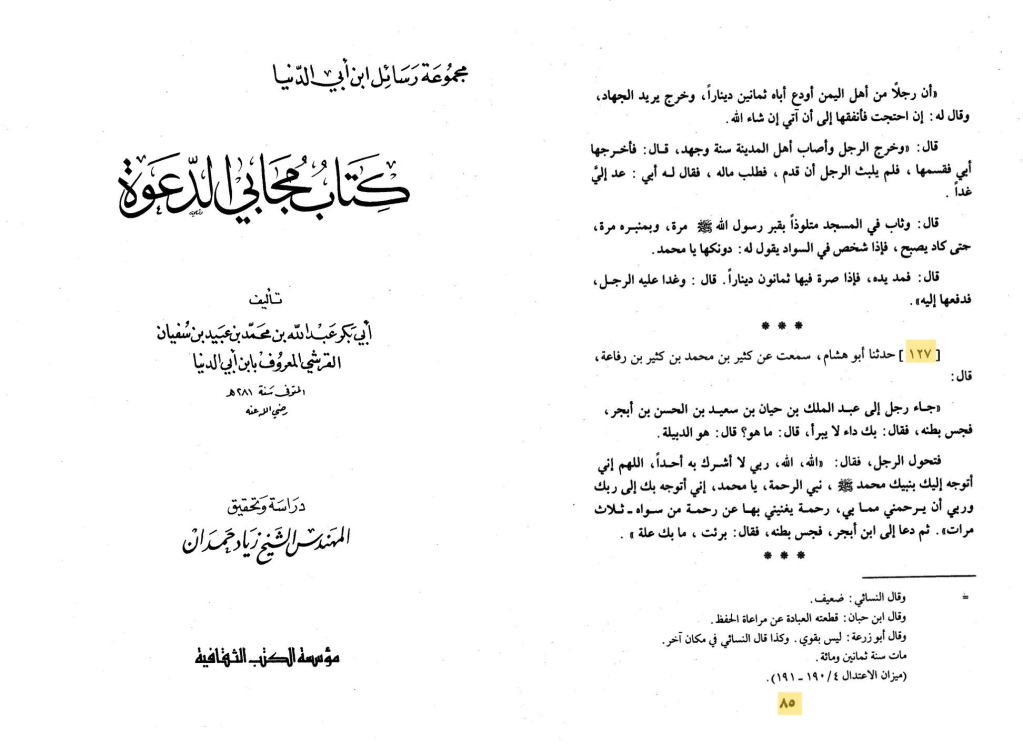 مجموعة رسائل ابن أبي الدنيا
كتاب مجابي الدعوة
تأليف
أبي بكر عبد الله بن محمد بن عبيد بن سفيان
القرشي المعروف بابن أبي الدنيا
المتوفى سنة ٢٨١هـ
رضي الله عنه
دراسة وتحقيق
المهندس الشيخ زياد حمدان
مؤسسة الكتب الثقافية
«أن رجلاً من أهل اليمن أودع أباه ثمانين ديناراً، وخرج يريد الجهاد،
وقال له: إن احتجت فأنفقها إلى أن آتي إن شاء الله.
قال: «وخرج الرجل وأصاب أهل المدينة سنة وجهد، قـال: فأخـرجها
أبي فقسمها ، فلم يلبث الرجل أن قدم ، فطلب ماله ، فقال لـه أبي : عد إليَّ
غداً .
قال: وثاب في المسجد متلوذاً بقبر رسول الله ﷺ مرة، وبمنبـره مرة،
حتى كاد يصبح، فإذا شخص في السواد يقول له: دونكها يا محمد.
قال: فمد يده، فإذا صرة فيها ثمانون ديناراً. قال : وغدا عليه الرجـل،
فدفعها إليه».
* * *
[ ١٢٧ ] حدثنا أبو هشام، سمعت عن كثير بن محمد بن كثير بن رفاعة،
قال:
«جـاء رجل إلى عبـد الملك بن حيان بن سعيـد بن الحسن بن أبجر،
فجس بطنه، فقال: بك داء لا يبرأ، قال: ما هو؟ قال: هو الدبيلة.
فتحول الرجل، فقال: «الله، الله، ربي لا أشرك به أحـداً، اللهم إني
أتوجه إليك بنبيك محمد ﷺ ، نبي الرحمة، يا محمد، إني أتوجه بك إلى ربك
وربي أن يـرحمني ممـا بي، رحمـة يغنيني بهـا عن رحمـة من سـواه ـ ثـلاث
مرات». ثم دعا إلى ابن أبجر، فجس بطنه، فقال: برئت ، ما بك علة » .
* * *
= وقال النسائي: ضعيف.
وقال ابن حبان: قطعته العبادة عن مراعاة الحفظ.
وقال أبو زرعة: ليس بقوي. وكذا قال النسائي في مكان آخر.
مات سنة ثمانين ومائة.
(ميزان الاعتدال ١٩٠/٤ ـ ١٩١).
٨٥